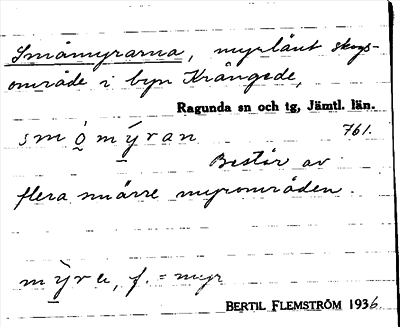 Småmyrarna, myrlänt skogs-
område i byn Krångede,
Ragunda sn och tg, Jämtl. län.
smǫ̀mý̱ran 761.
Består av
flera smärre myrområden.
mỳ̱ra, f. = myr
BERTIL FLEMSTRÖM 1936.